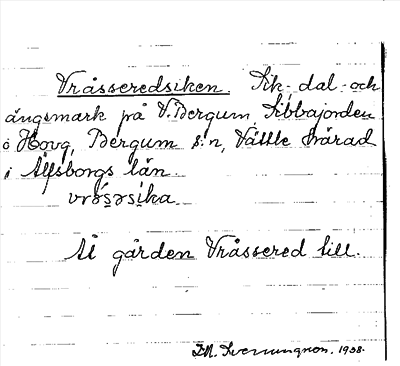 Vråsseredsiken. Sik-dal- och
ängsmark på V. Bergum, Sibbajorden
o Hovg, Bergum s:n, Vättle härad
i Älfsborgs län.
vrǻsəsika
At gården Vråssered till.
1938.